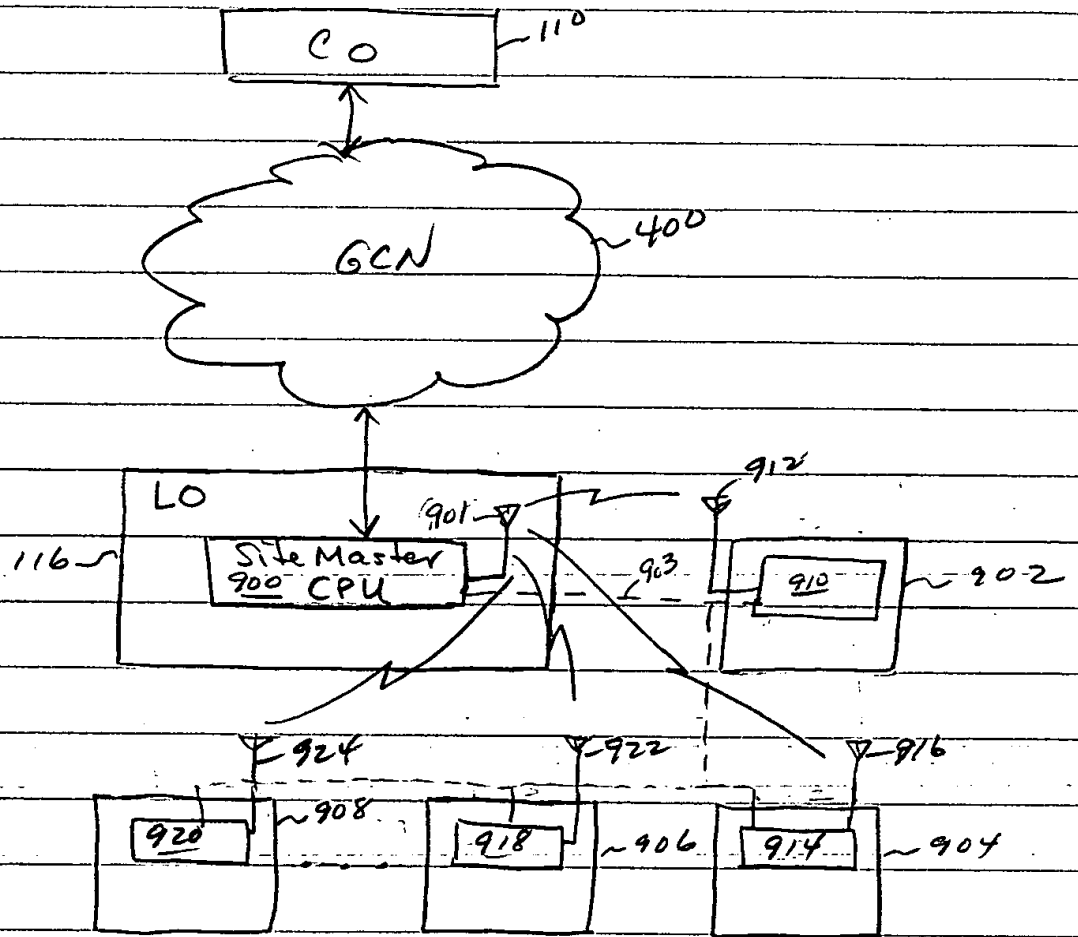 CO
110
GCN
400
LO
912
901
116
Site Master
900 CPU
903
910
902
924
922
916
920
908
918
906
914
904